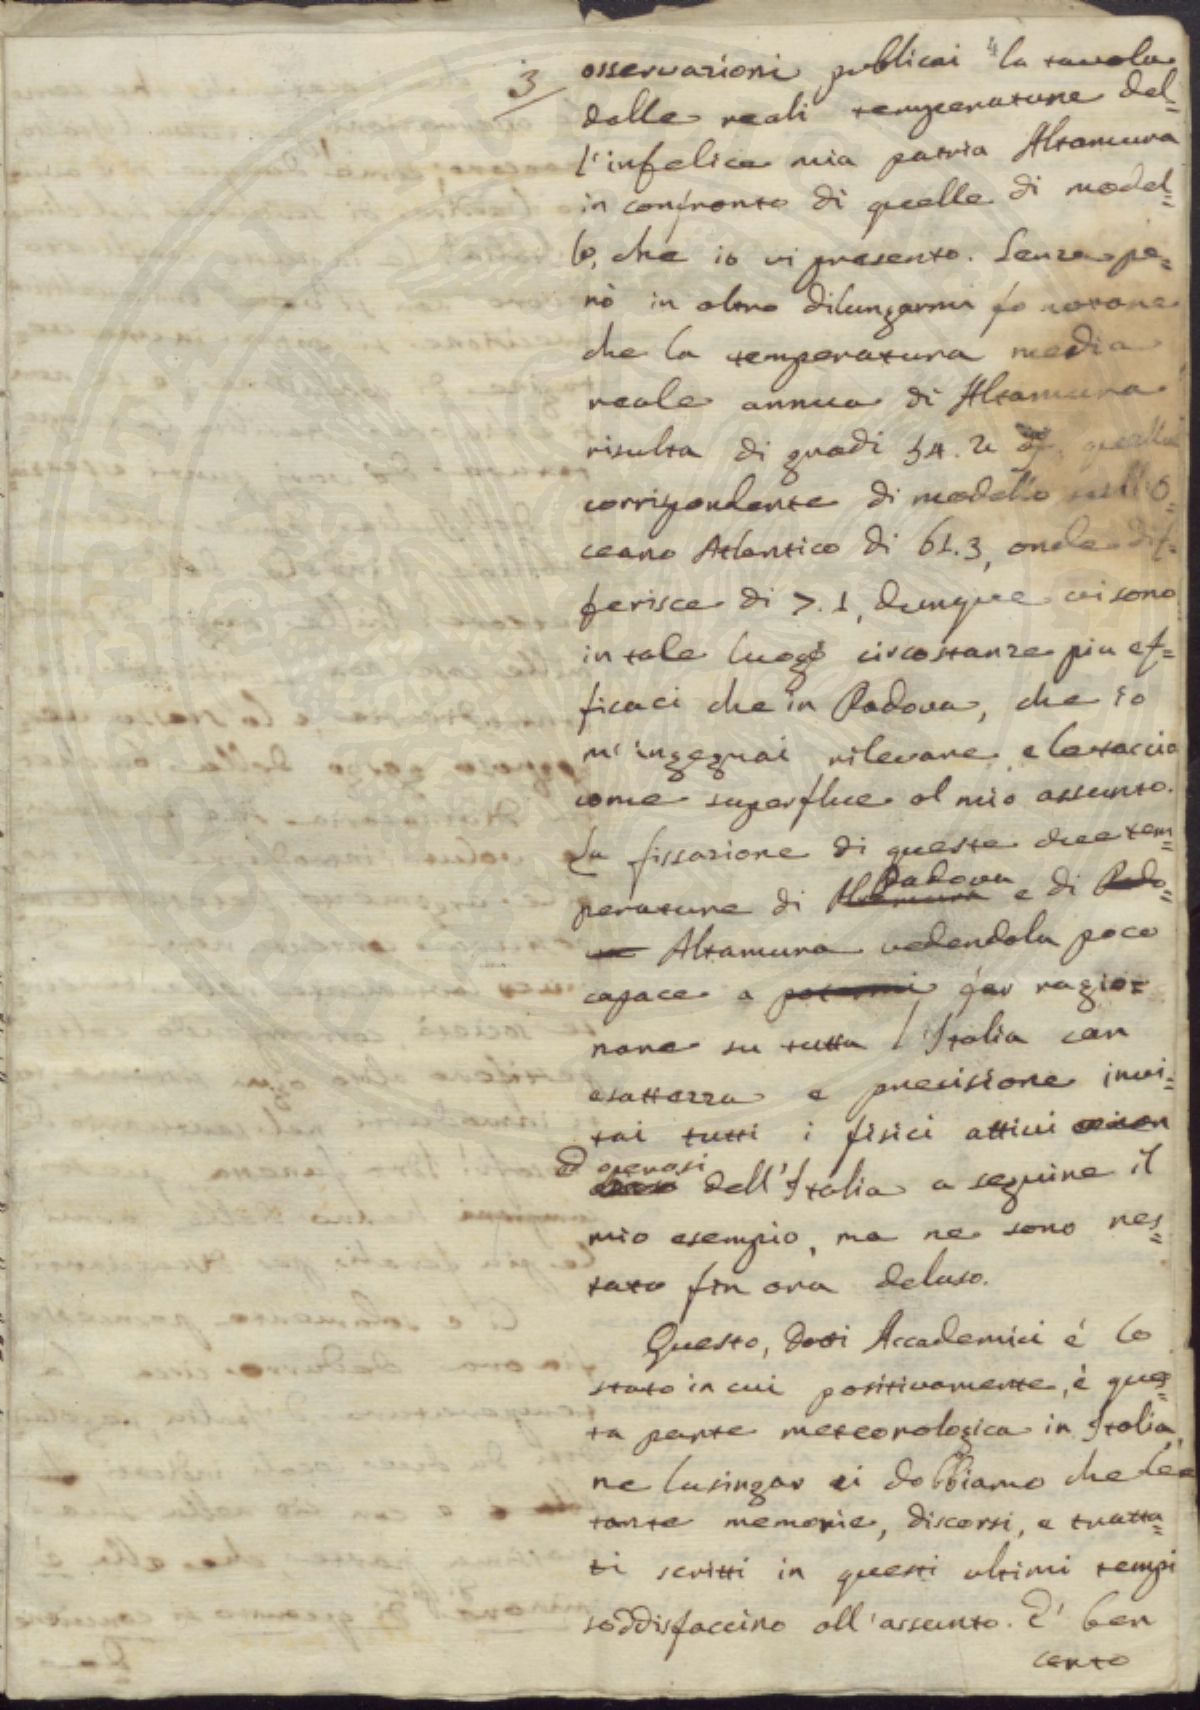 3
4
osservazioni publicai la tavola
delle reali temperature del=
l'infelice mia patria Altamura
in confronto di quelle di model=
lo, che io vi presento. Senza pe=
rò in oltre dilungarmi fo notare
che la temperatura media
reale annua di Altamura
risulta di gradi 54.2 quella
corrispondente di modello sull'O=
ceano Atlantico di 61.3, onde dif=
ferisce di 7.1, dunque vi sono
in tale luogo circostanze piu ef=
ficaci che in Padova, che io
m'ingegnai rilevare, e le taccio
come superflue al mio assunto.
La fissazione di queste due tem=
Padova
perature di Altamura e di Pado=
va Altamura vedendola poco
capace a potermi far ragio=
nare su tutta l'Italia con
esattezza e precisione invi=
tai tutti i fisici attivi
ed operosi
dell'Italia a seguire il
mio esempio, ma ne sono res=
tato fin ora deluso.
Questo, dotti Accademici è lo
stato in cui positivamente, è ques=
ta parte meteorologica in Italia,
ne lusingar ci dobbiamo che le
tante memorie, discorsi, e tratta=
ti scritti in questi ultimi tempi
soddisfaccino all'assunto. E' ben
certo